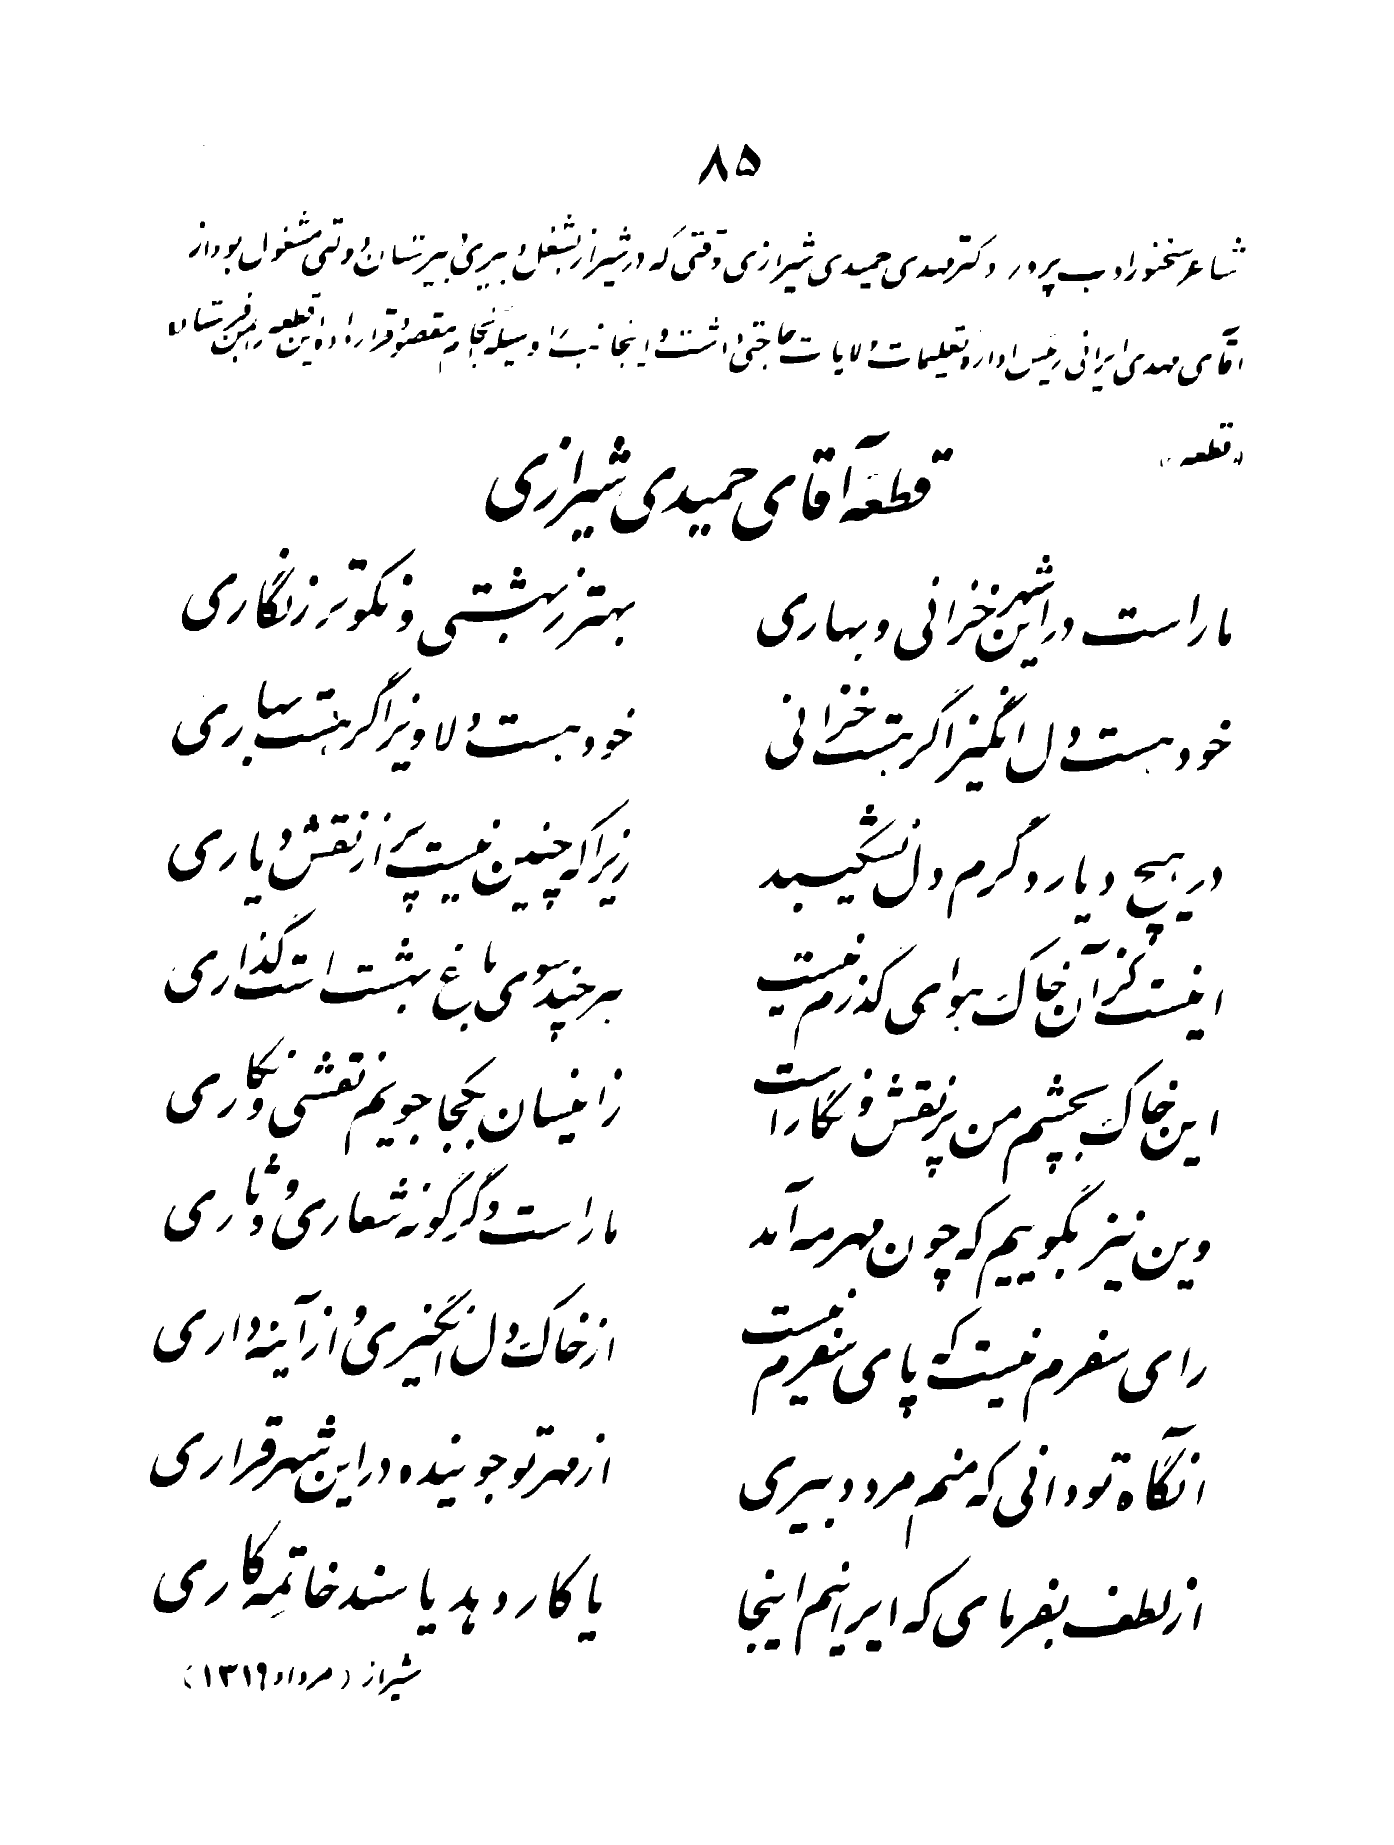 ۸۵
شاعر سخنور ادب پرور دکتر مهدی حمیدی شیرازی وقتی که در شیراز بشغل دبیری دبیرستان دولتی مشغول بود از
آقای مهدی ایرانی رئیس اداره تعلیمات ولایات حاجتی داشت و اینجانب را وسیله انجام مقصود قرار داده این قطعه را بمن فرستاد
«قطعه»
قطعه آقای حمیدی شیرازی
ما راست در این شهر خزانی و بهاری بهتر ز بهشتی و نکوتر ز نگاری
خود هست دل انگیز اگر هست خزانی خود هست دلاویز اگر هست بهاری
در هیچ دیار دگرم دل نشکیبد زیرا که چنین نیست پر از نقش دیاری
اینست کز آن خاک هوای گذرم نیست هر چند بسوی باغ بهشت است گذاری
این خاک بچشم من پر نقش و نگار است زاینسان بکجا جویم نقشی و نگاری
وین نیز بگوییم که چون مهر مه آمد ما راست دگرگونه شعاری و دثاری
رای سفرم نیست که پای سفرم نیست از خاک دل انگیزی و از آینه داری
آنگاه تو دانی که منم مرد دبیری از مهر تو جوینده در این شهر قراری
از لطف بفرمای که ایرانیم اینجا یا کار دهد یا سند خاتمه کاری
شیراز (مرداد ۱۳۱۹)